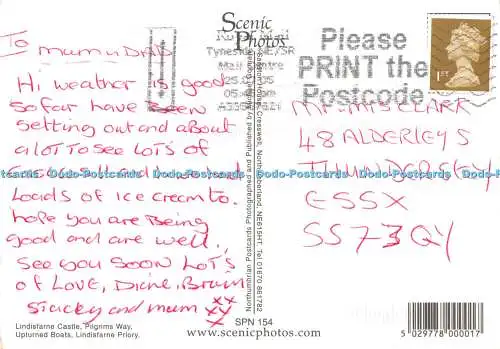 To Mum n DAD
Hi weather is good
so far have been
getting out and about
a lot to see lots of
Loads of ice cream to.
hope you are Being
good and are well.
See you soon Lots
of Love, Diane, Brian
Stacey and mum xx
xy
x
Lindisfarne Castle, Pilgrims Way,
Upturned Boats, Lindisfarne Priory.
Scenic
Photos
Royal Mail
Tyneside NE/SR
Mail Centre
05
Please
PRINT the
Postcode
1ST
Northumbrian Postcards Photographed and Published by
Cresswell, Northumberland, NE615HT. Tel 01670 861782
MR, MRS CLARK
48 ALDERLEYS
THUNDERSLEY
ESSX
SS73QY
SPN 154
www.scenicphotos.com
5 029778 000017
Dodo-Postcards Dodo-Postcards Dodo-Postcards Dodo-Postcards